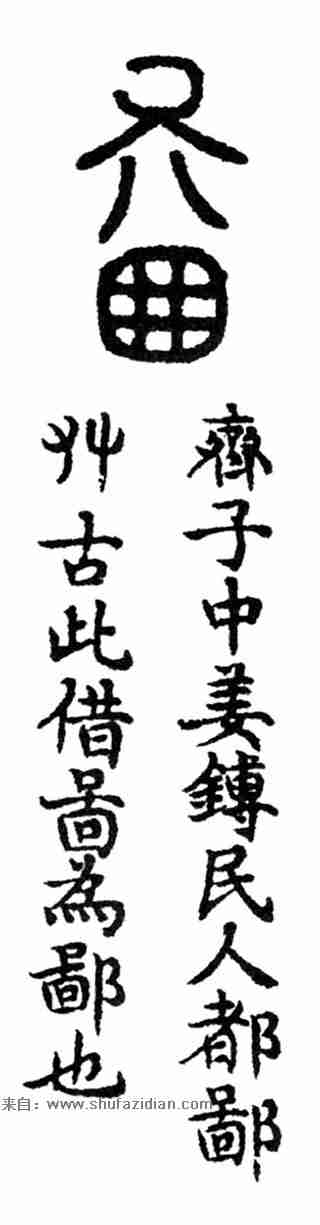 齊子中姜鎛民人都鄙
艸古此借啚為鄙也
来自：www.shufazidian.com